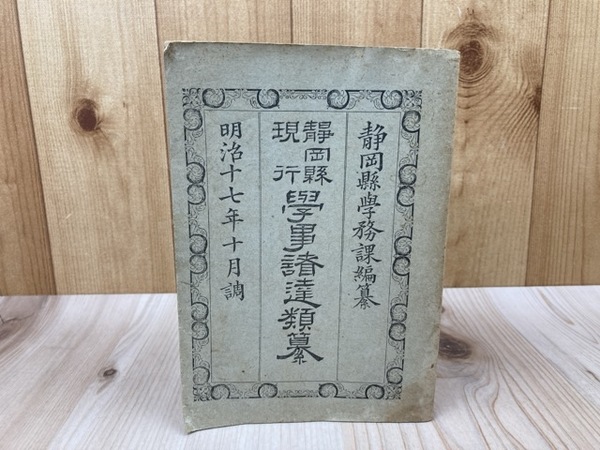 靜岡縣學務課編纂
靜岡縣
現行
學事諸達類纂
明治十七年十月調